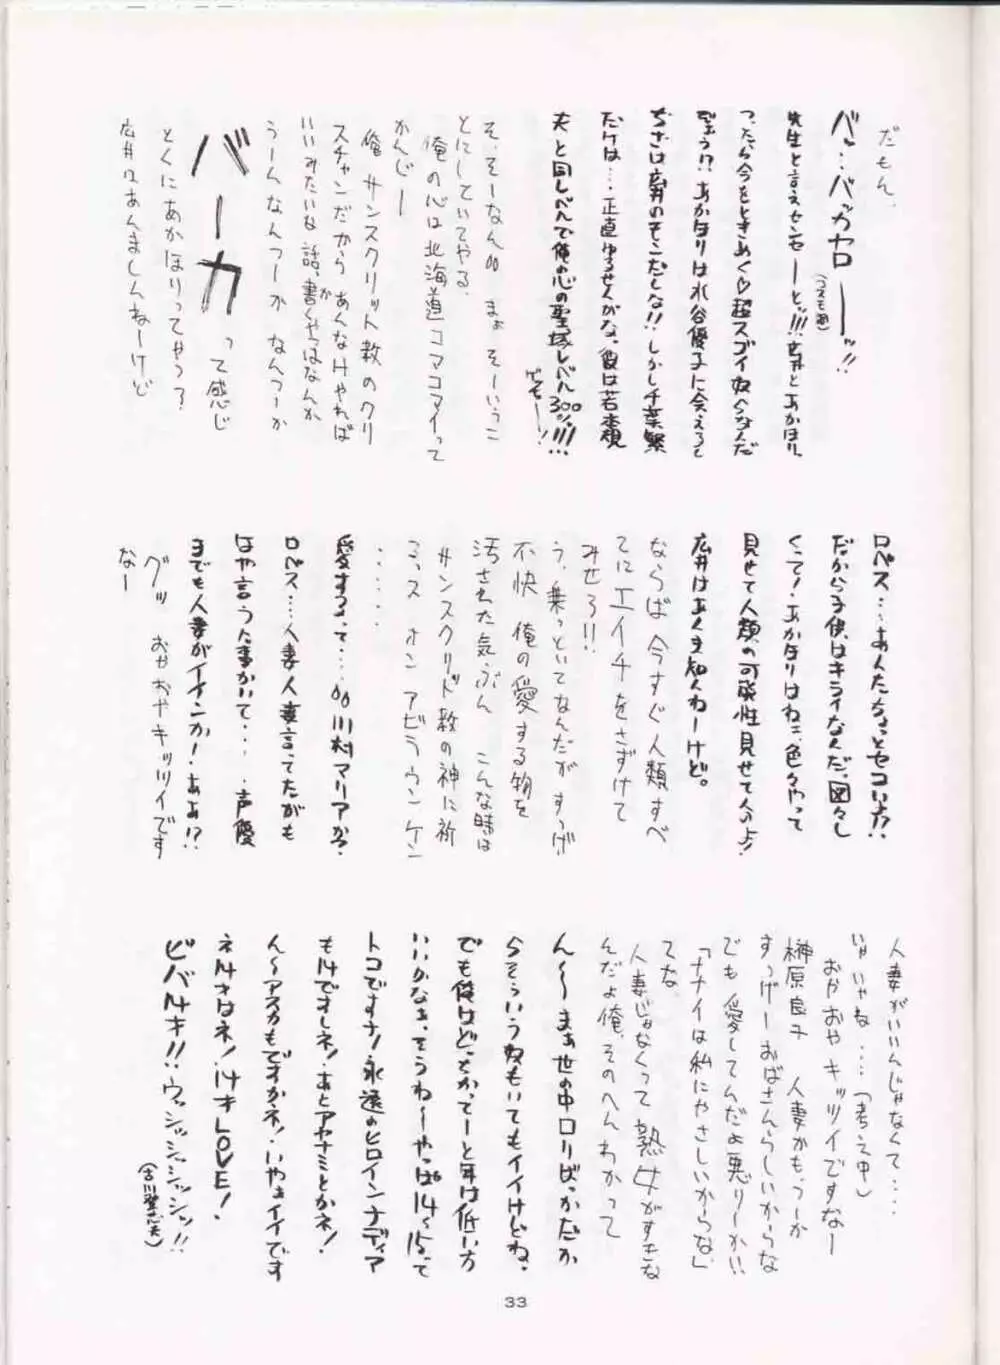 だもん。
バ…バッカヤローッ!!
(コスモ風)
先生と言えセンセーとッ!!!広井とあかほり、
ったら今をときめく♡超スゴイ奴らなんだ
ぞぉう!?あかほりは水谷優子に会えるて
ちさは広井のそこだしな!!しかし千葉繁
だけは…正直ゆるせんがな。彼は若本規
夫と同レベルで俺の心の聖塚レベル300%!!!
ゲェモー!
そ、そーなん°°まぁそーいうこ
とにしていてやる。
俺の心は北海道コマコマイって
かんじー
俺、サンスクリット教のクリ
スチャンだからあんなけやれば
いいみたいな話っか書くやつはなんか
うーんなんつーかなんつーか
バーカって感じ
とくにあかほりってやつ?
広井はあんましんねーけど
ロペス…あんたちょっとセコい!?
だから子供はキライなんだ。図々し
くって!あかほりはねェ、色々やって
見せて人類の可能性見せて人のよ!
広井はあくま知んねーけど。
ならば今すぐ人類すべ
てにエイチをさずけて
みせろ!!
う、乗っといてなんだがすっげ
不快 俺の愛する物を
汚された気ぶん こんな時は
サンスクリッド教の神に祈
ろっスオンアビラウンケン
・・・・・
愛するって…°°川村マリアか?
ロペス…人妻人妻言ってたがも
はや言うた事かいて…声優
までも人妻がイインか!ああ!?
グッ おやおやキッツイです
なー
人妻がいいんじゃなくて…
いやいやね…(考え中)
おやおやキッツイですなー
榊原良子 人妻かもうーか
すっげーおばさんらしいからな
でも愛してんだよ悪りーかい!
「ナナイは私にやさしいからな」
てな。
人妻じゃなくって熟女がすきな
んだよ俺。そのへんわかって
ん〜〜まぁ世の中ロリばっかだか
らそういう奴もいてもイイけどね。
でも俺はどっちかってーと年は低い方
いいかなぁ、そうねーやっぱ14〜15って
トコですナ!永遠のヒロインナディア
も14ですしネ!あとアヤナミとかネ!
ん〜アスカもですかネ!いやぁイイです
ネ14才はネ!14才LOVE!
ビバ14才!!ウッシッシッシッシッ!!
(古川登志夫)
33